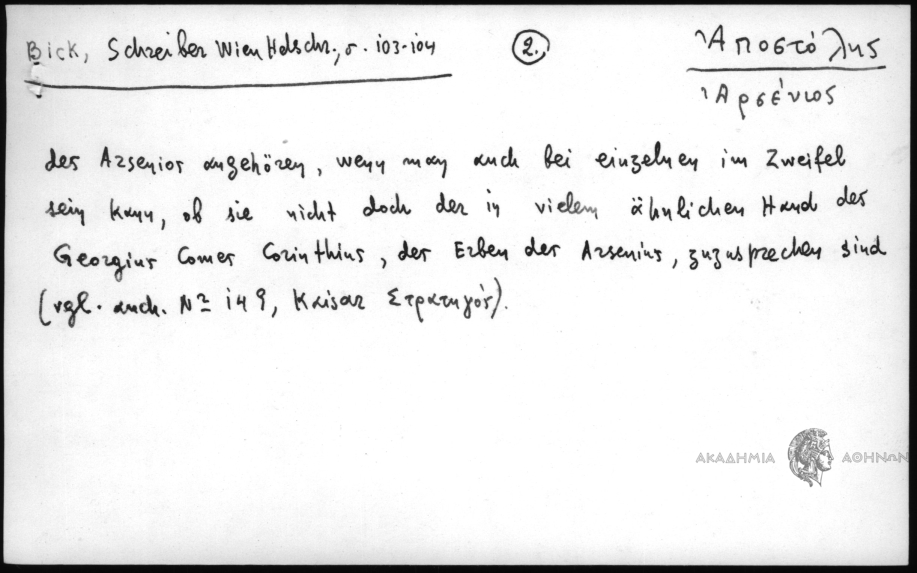 Bick, Schreiber Wien Hdschr., σ. 103-104
2.
Ἀποστόλης
Ἀρσένιος
des Arsenios angehören, wenn man auch bei einzelnen im Zweifel
sein kann, ob sie nicht doch der in vielem ähnlichen Hand des
Georgius Comes Corinthius, des Erben des Arsenius, zuzusprechen sind
(vgl. auch. Nº 149, Kaisar Στρατηγός).
ΑΚΑΔΗΜΙΑ ΑΘΗΝΩΝ